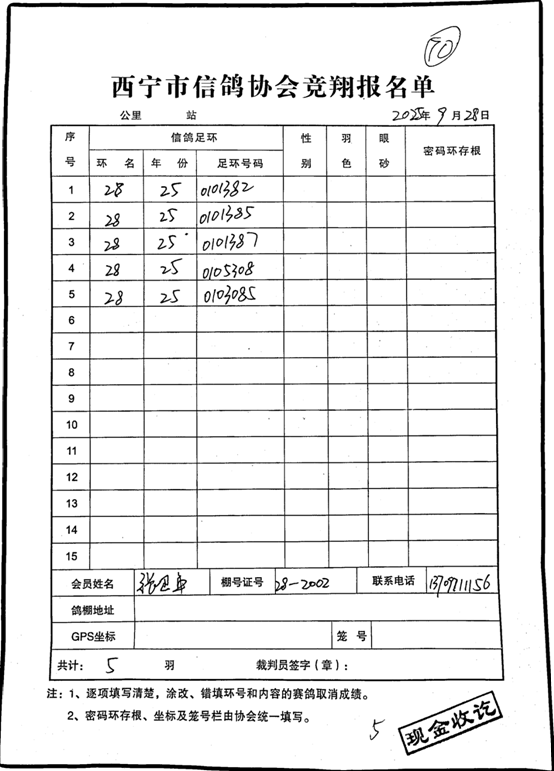 70
西宁市信鸽协会竞翔报名单
公里 站 2025年9月28日
序号 信鸽足环 性别 羽色 眼砂 密码环存根
环名 年份 足环号码
1 28 25 0101382
2 28 25 0101385
3 28 25 0101387
4 28 25 0105308
5 28 25 0103085
6
7
8
9
10
11
12
13
14
15
会员姓名 张 棚号证号 28-2002 联系电话
鸽棚地址
GPS坐标 笼号
共计: 5 羽 裁判员签字(章):
注:1、逐项填写清楚,涂改、错填环号和内容的赛鸽取消成绩。
2、密码环存根、坐标及笼号栏由协会统一填写。
5 现金收讫